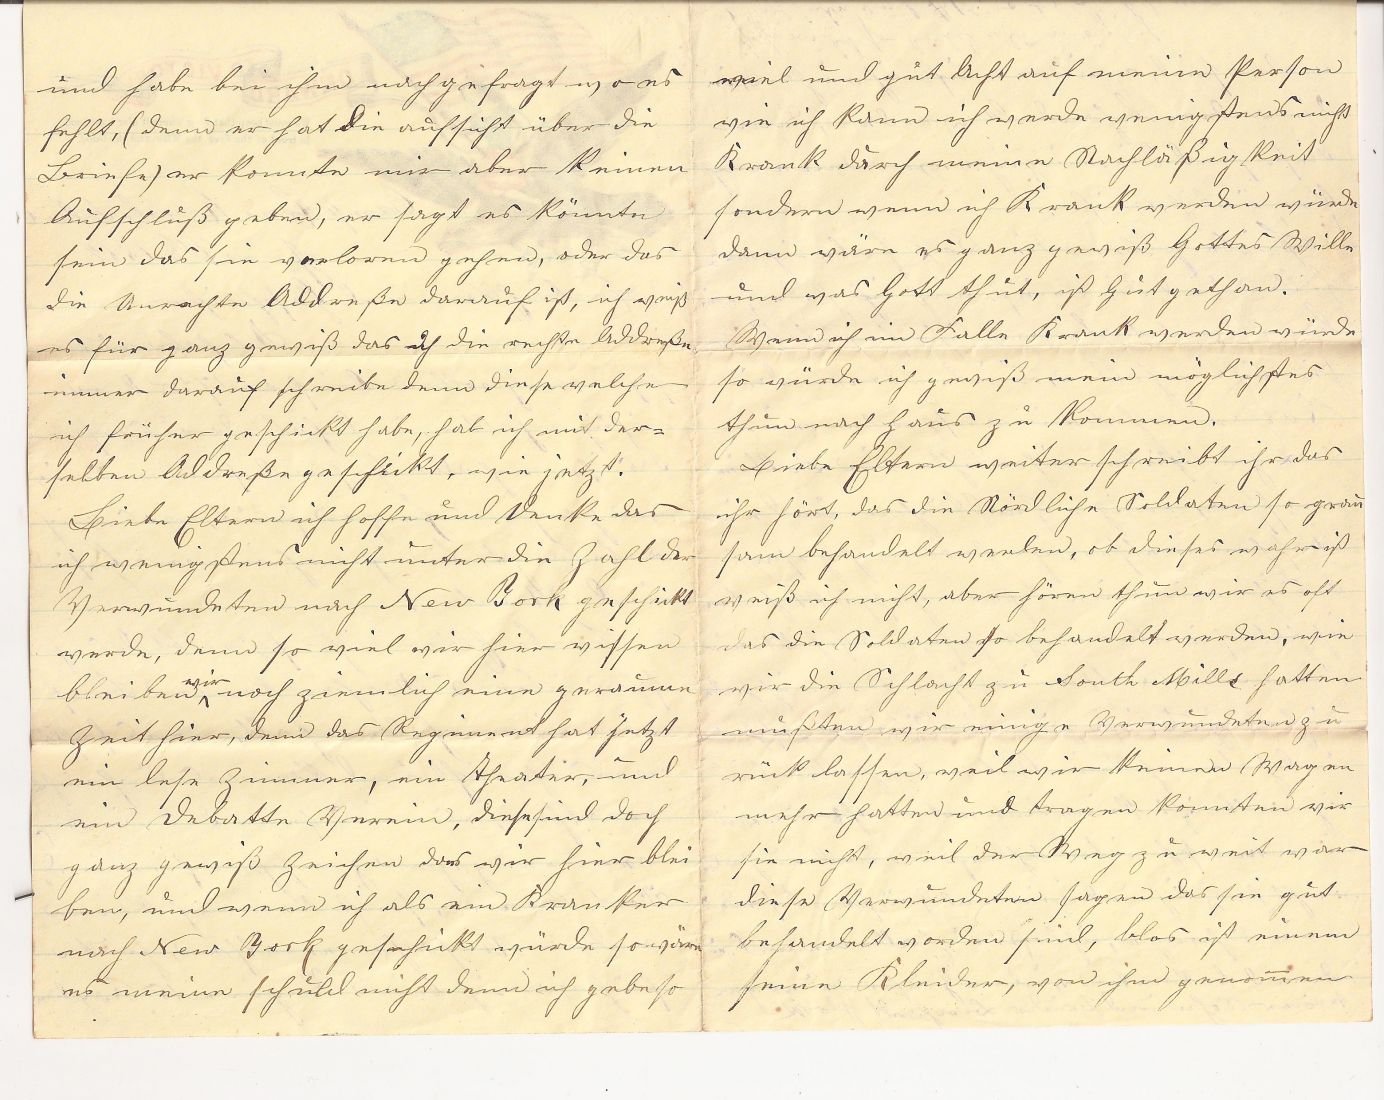 und habe bei ihm nachgefragt wo es
fehlt, (denn er hat die aufsicht über die
Briefe) er konnte mir aber keinen
Aufschluß geben, er sagt es könnte
sein das sie verloren gehen, oder das
die Unrechte Addreße darauf ist, ich weiß
es für ganz gewiß das ich die rechte Addreße
immer darauf schreibe denn diese welche
ich früher geschickt habe, hab ich mit der=
selben Addreße geschickt, wie jetzt.
Liebe Eltern ich hoffe und denke das
ich wenigstens nicht unter die Zahl der
Verwundeten nach New York geschickt
werde, denn so viel wir hier wissen
bleiben wir noch ziemlich eine geraume
Zeit hier, denn das Regiment hat jetzt
ein lese Zimmer, ein Theater, und
ein Debatte Verein, diese sind doch
ganz gewiß Zeichen das wir hier blei
ben, und wenn ich als ein Kranker
nach New York geschickt würde so wäre
es meine schuld nicht denn ich gebe so
viel und gut Acht auf meine Person
wie ich kann ich werde wenigstens nicht
Krank durch meine Nachläßigkeit
sondern wenn ich Krank werden würde
dann wäre es ganz gewiß Gottes Wille
und was Gott thut, ist Gut gethan.
Wenn ich im Falle Krank werden würde
so würde ich gewiß mein möglichstes
thun nach Haus zu kommen.
Liebe Eltern weiter schreibt ihr das
ihr hört, das die Nördliche Soldaten so grau
sam behandelt werden, ob dieses wahr ist
weiß ich nicht, aber hören thun wir es oft
das die Soldaten so behandelt werden, wie
wir die Schlacht zu South Mills hatten
mußten wir einige Verwundeten zu
rück lassen, weil wir keinen Wagen
mehr hatten und tragen konnten wir
sie nicht, weil der Weg zu weit war
diese Verwundeten sagen das sie gut
behandelt worden sind, blos ist einem
seine Kleider, von ihm genom̄en